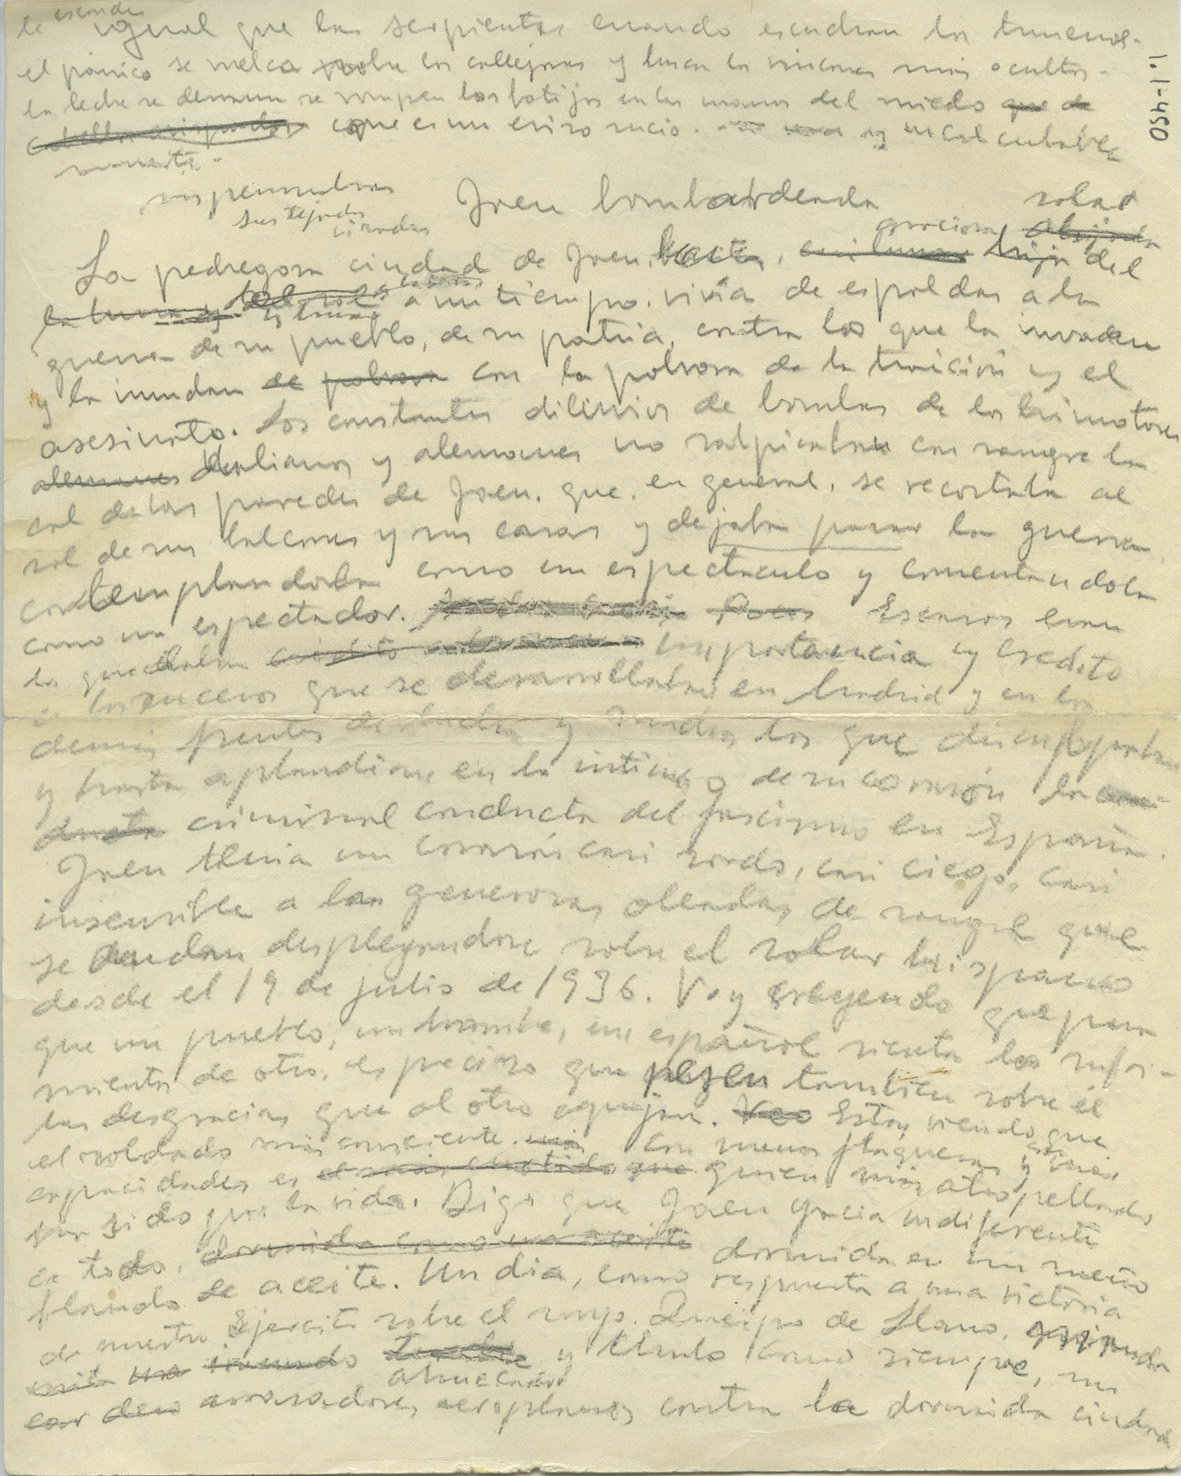 se esconden
igual que las serpientes cuando escuchan los truenos.
el pánico se vuelca sobre los callejones y busca los rincones más ocultos.
la leche se derrama se rompen los botijos en las manos del miedo que de
que es un erizo sucio. y incalculable
sus penumbras
sus tejados
Jaen bombardeada
solar
graciosa
La pedregosa ciudad de Jaen, hija del
la luna y
a un tiempo. vivía de espaldas a la
guerra de su pueblo, de su patria, contra los que la invaden
y la inundan de polvora con la polvora de la traición y el
asesinato. Los constantes diluvios de bombas de los trimotores
alemanes italianos y alemanes no salpicaban con sangre la
cal de las paredes de Jaen. que. en general, se recostaba al
sol de sus balcones y sus casas y dejaba pasar la guerra,
contemplandola como un espectaculo y comentandola
como un espectador. Pocos Escasos eran
los que daban importancia y credito
a los sucesos que se desarrollaban en Madrid y en los
demás frentes de lucha y muchos los que disculpaban
y hasta aplaudian en lo intimo de su corazón la
criminal conducta del fascismo en España.
Jaen tenia un corazón casi sordo, casi ciego, casi
insensible a las generosas oleadas de sangre que
se vendan desplegandose sobre el solar hispano
desde el 19 de julio de 1936. Voy creyendo que para
que un pueblo, un hombre, un español sienta los sufri-
mientos de otro, es preciso que pesen tambien sobre el
las desgracias que al otro aquejan. Veo Estoy viendo que
el soldado más consciente. con menos flaquezas y
capacidades es quien más atropellado
ha sido por la vida. Digo que Jaen yacia indiferente
a todo, dormida como una aceite dormida en un sueño
blando de aceite. Un dia, como respuesta a una victoria
de nuestro Ejercito sobre el suyo. Queipo de Llano,
y como siempre, sus
arrasadores aeroplanos contra la dormida ciudad
1.1-450